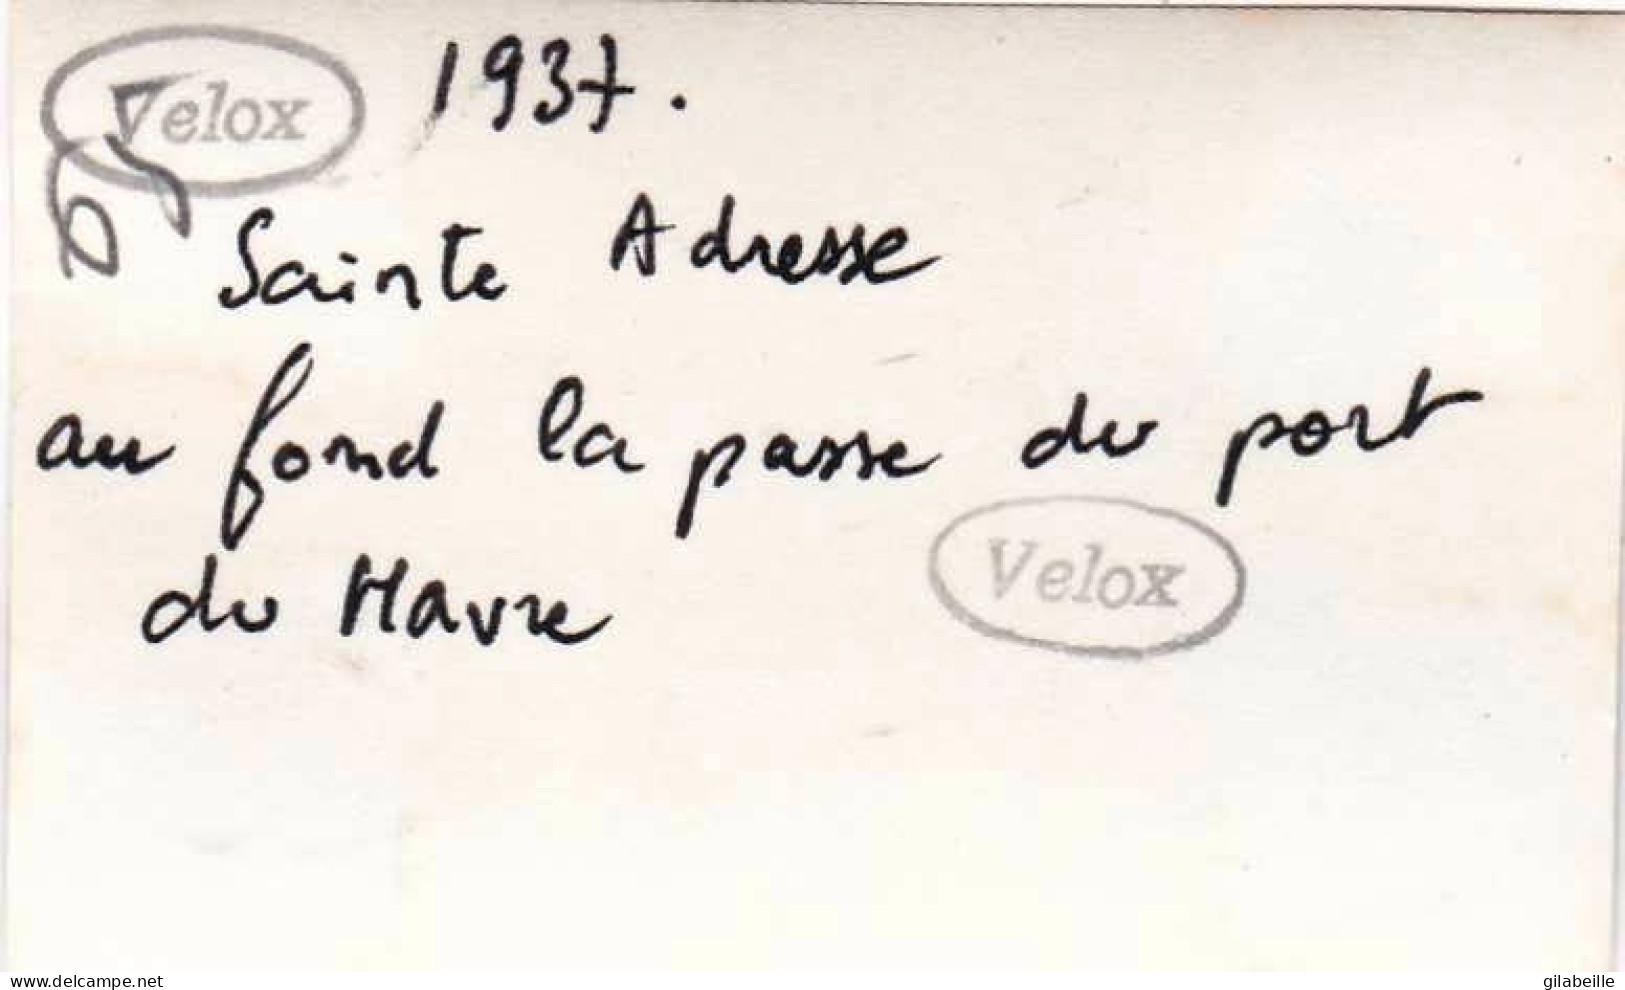 Velox 1937.
Sainte Adresse
au fond la passe du port
du Havre
Velox
delcampe.net
gilabeille